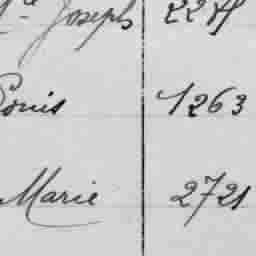 Joseph
Louis 1263
Marie 2721